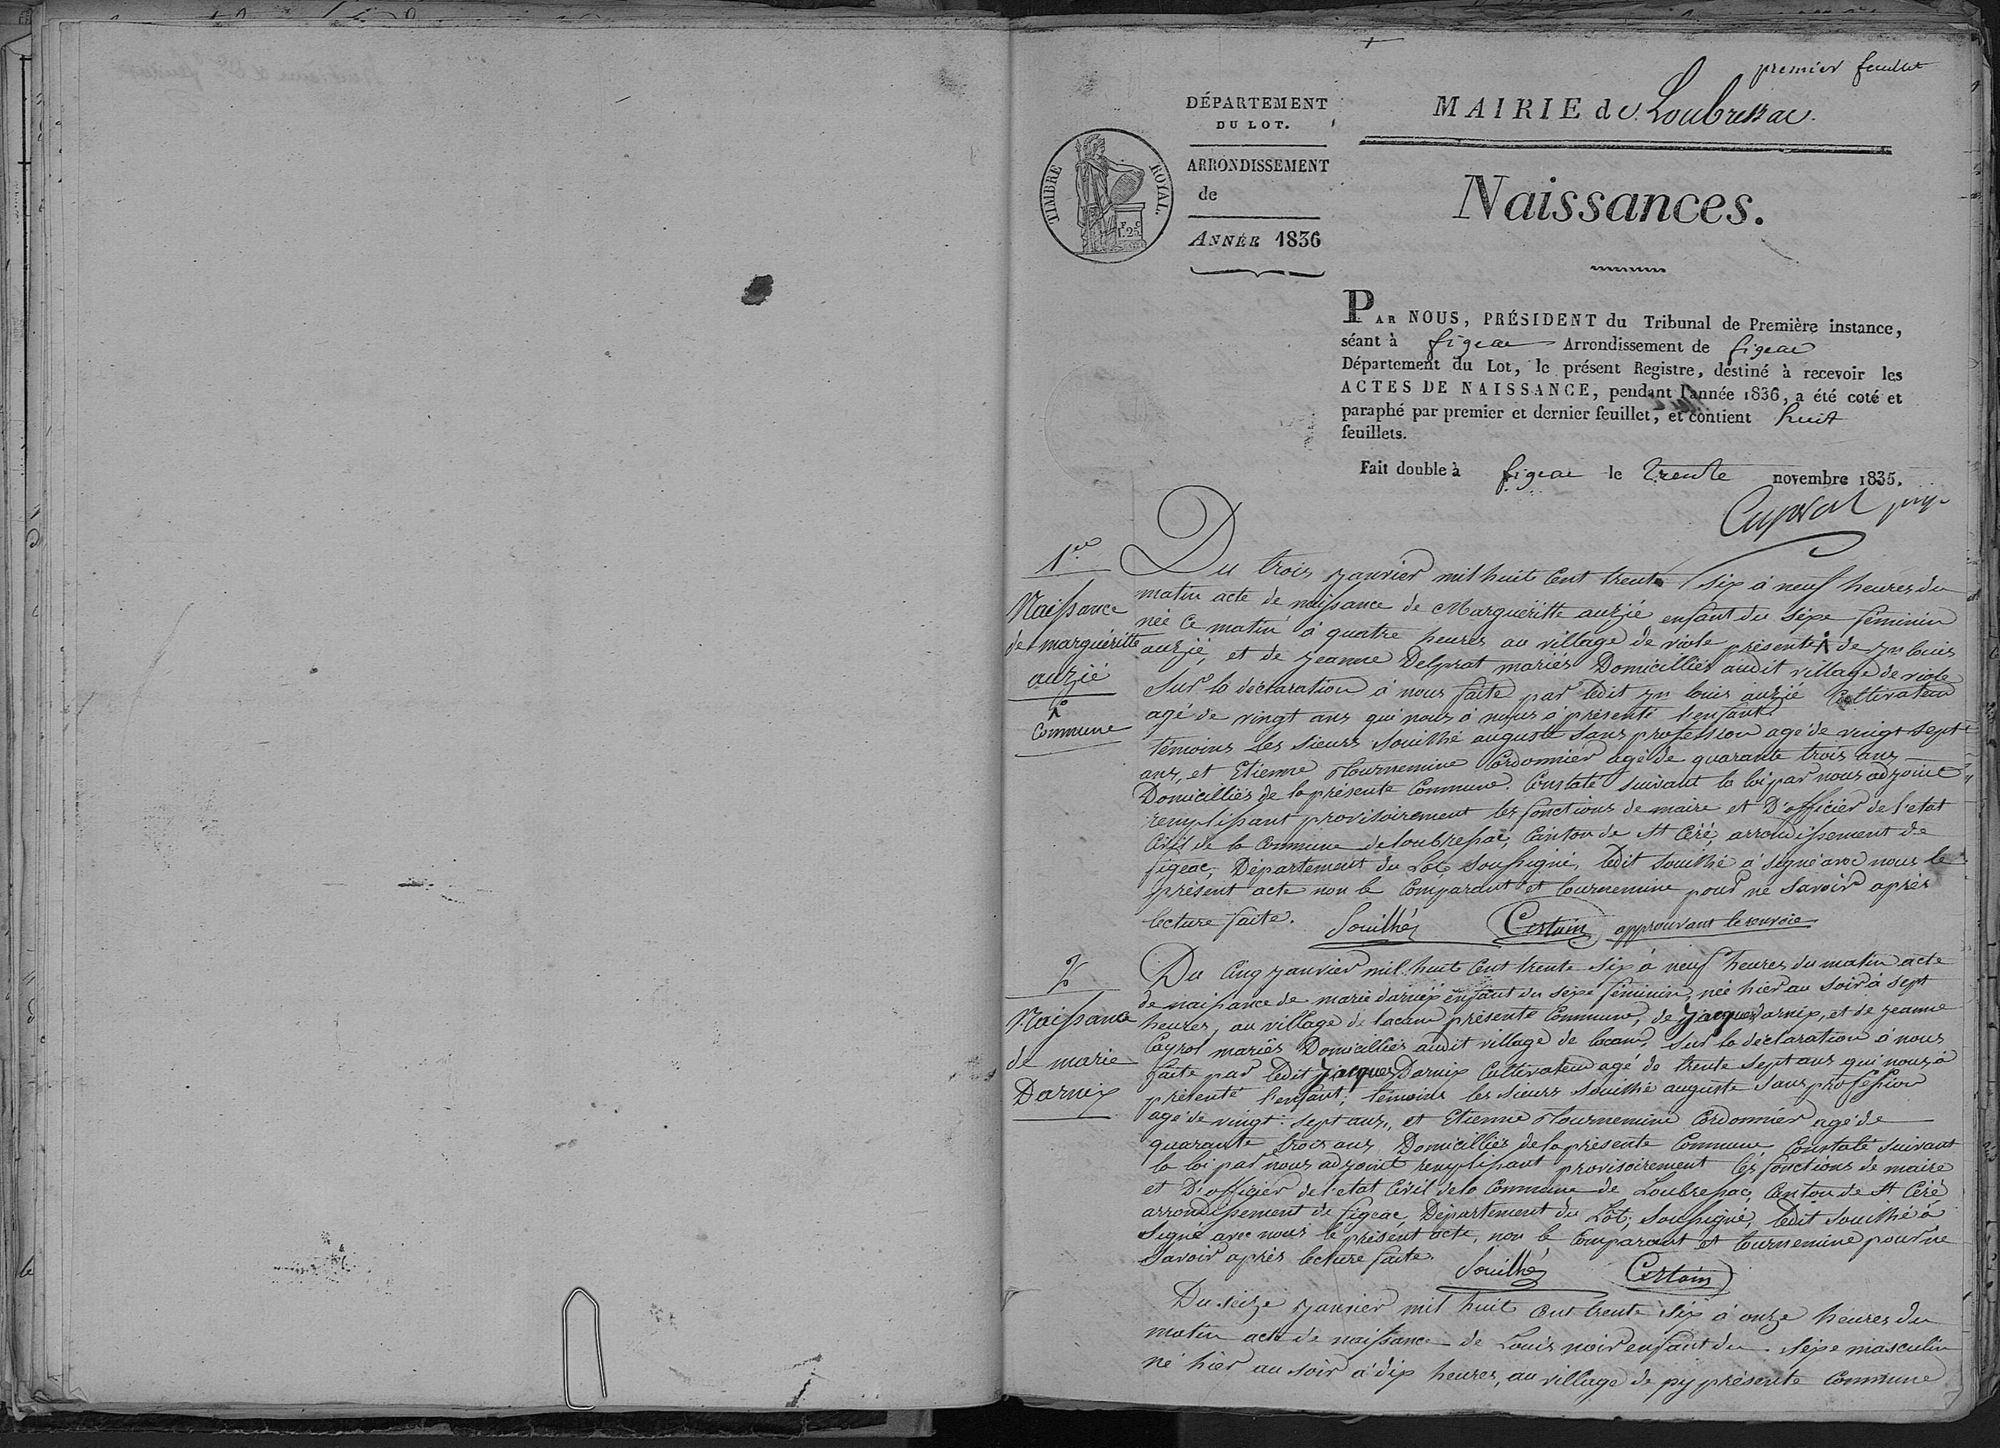 premier feuillet
DÉPARTEMENT
DU LOT.
ARRONDISSEMENT
de
ANNÉE 1836
TIMBRE ROYAL.
MAIRIE de Loubressac.
Naissances.
PAR NOUS, PRÉSIDENT du Tribunal de Première instance,
séant à figeac Arrondissement de figeac
Département du Lot, le présent Registre, destiné à recevoir les
ACTES DE NAISSANCE, pendant l'année 1836, a été coté et
paraphé par premier et dernier feuillet, et contient huit
feuillets.
Fait double à figeac le trente novembre 1835.
1re
Naissance
de marguéritte
auzié
commune
Du trois janvier mil huit cent trente six à neuf heures du
matin acte de naissance de Marguéritte auzié enfant du sexe féminin
née ce matin à quatre heures au village de viole présente de jn louis
auzié, et de jeanne Delprat mariés Domicilliés audit village de viole
Sur la déclaration à nous faite par ledit jn louis auzié Cultivateur
agé de vingt ans qui nous à nous à présenté l'enfant.
témoins les sieurs Souilhé auguste sans profession agé de vingt sept
ans, et Etienne tournemine Cordonnier agé de quarante trois ans
Domicilliés de la présente Commune. Constaté suivant la loi par nous adjoint
remplissant provisoirement les fonctions de maire et D'officier de l'etat
Civil de la Commune de loubressac, Canton de St Céré, arrondissement de
figeac, Département du Lot soussigné, ledit souilhé à signé avec nous le
présent acte non le Comparant et tournemine pour ne savoir après
lecture faite. Souilhé Certain approuvant le renvoie
2e
Naissance
de marie
Darnix
Du cinq janvier mil huit cent trente six à neuf heures du matin acte
de naissance de marie darnix enfant du sexe féminin, née hier au soir à sept
heures, au village de lacam présente Commune, de jacques darnix, et de jeanne
Cayrol mariés Domicilliés audit village de lacam, Sur la déclaration à nous
faite par ledit jacques Darnix Cultivateur agé de trente sept ans qui nous à
présenté l'enfant; témoins les sieurs Souilhé auguste sans profession
agé de vingt sept ans, et Etienne tournemine Cordonnier agé de
quarante trois ans Domicilliés de la présente Commune, Constaté suivant
la loi par nous adjoint remplissant provisoirement les fonctions de maire
et D'officier de l'etat Civil de la Commune de Loubressac, Canton de St Céré
arrondissement de figeac, Département du Lot, soussigné, ledit souilhé à
Signé avec nous le présent acte, non le Comparant et tournemine pour ne
savoir après lecture faite. Souilhé Certain
Du seize janvier mil huit cent trente six à onze heures du
matin acte de naissance de Louis noir enfant du sexe masculin
né hier au soir à dix heures, au village de py présente Commune